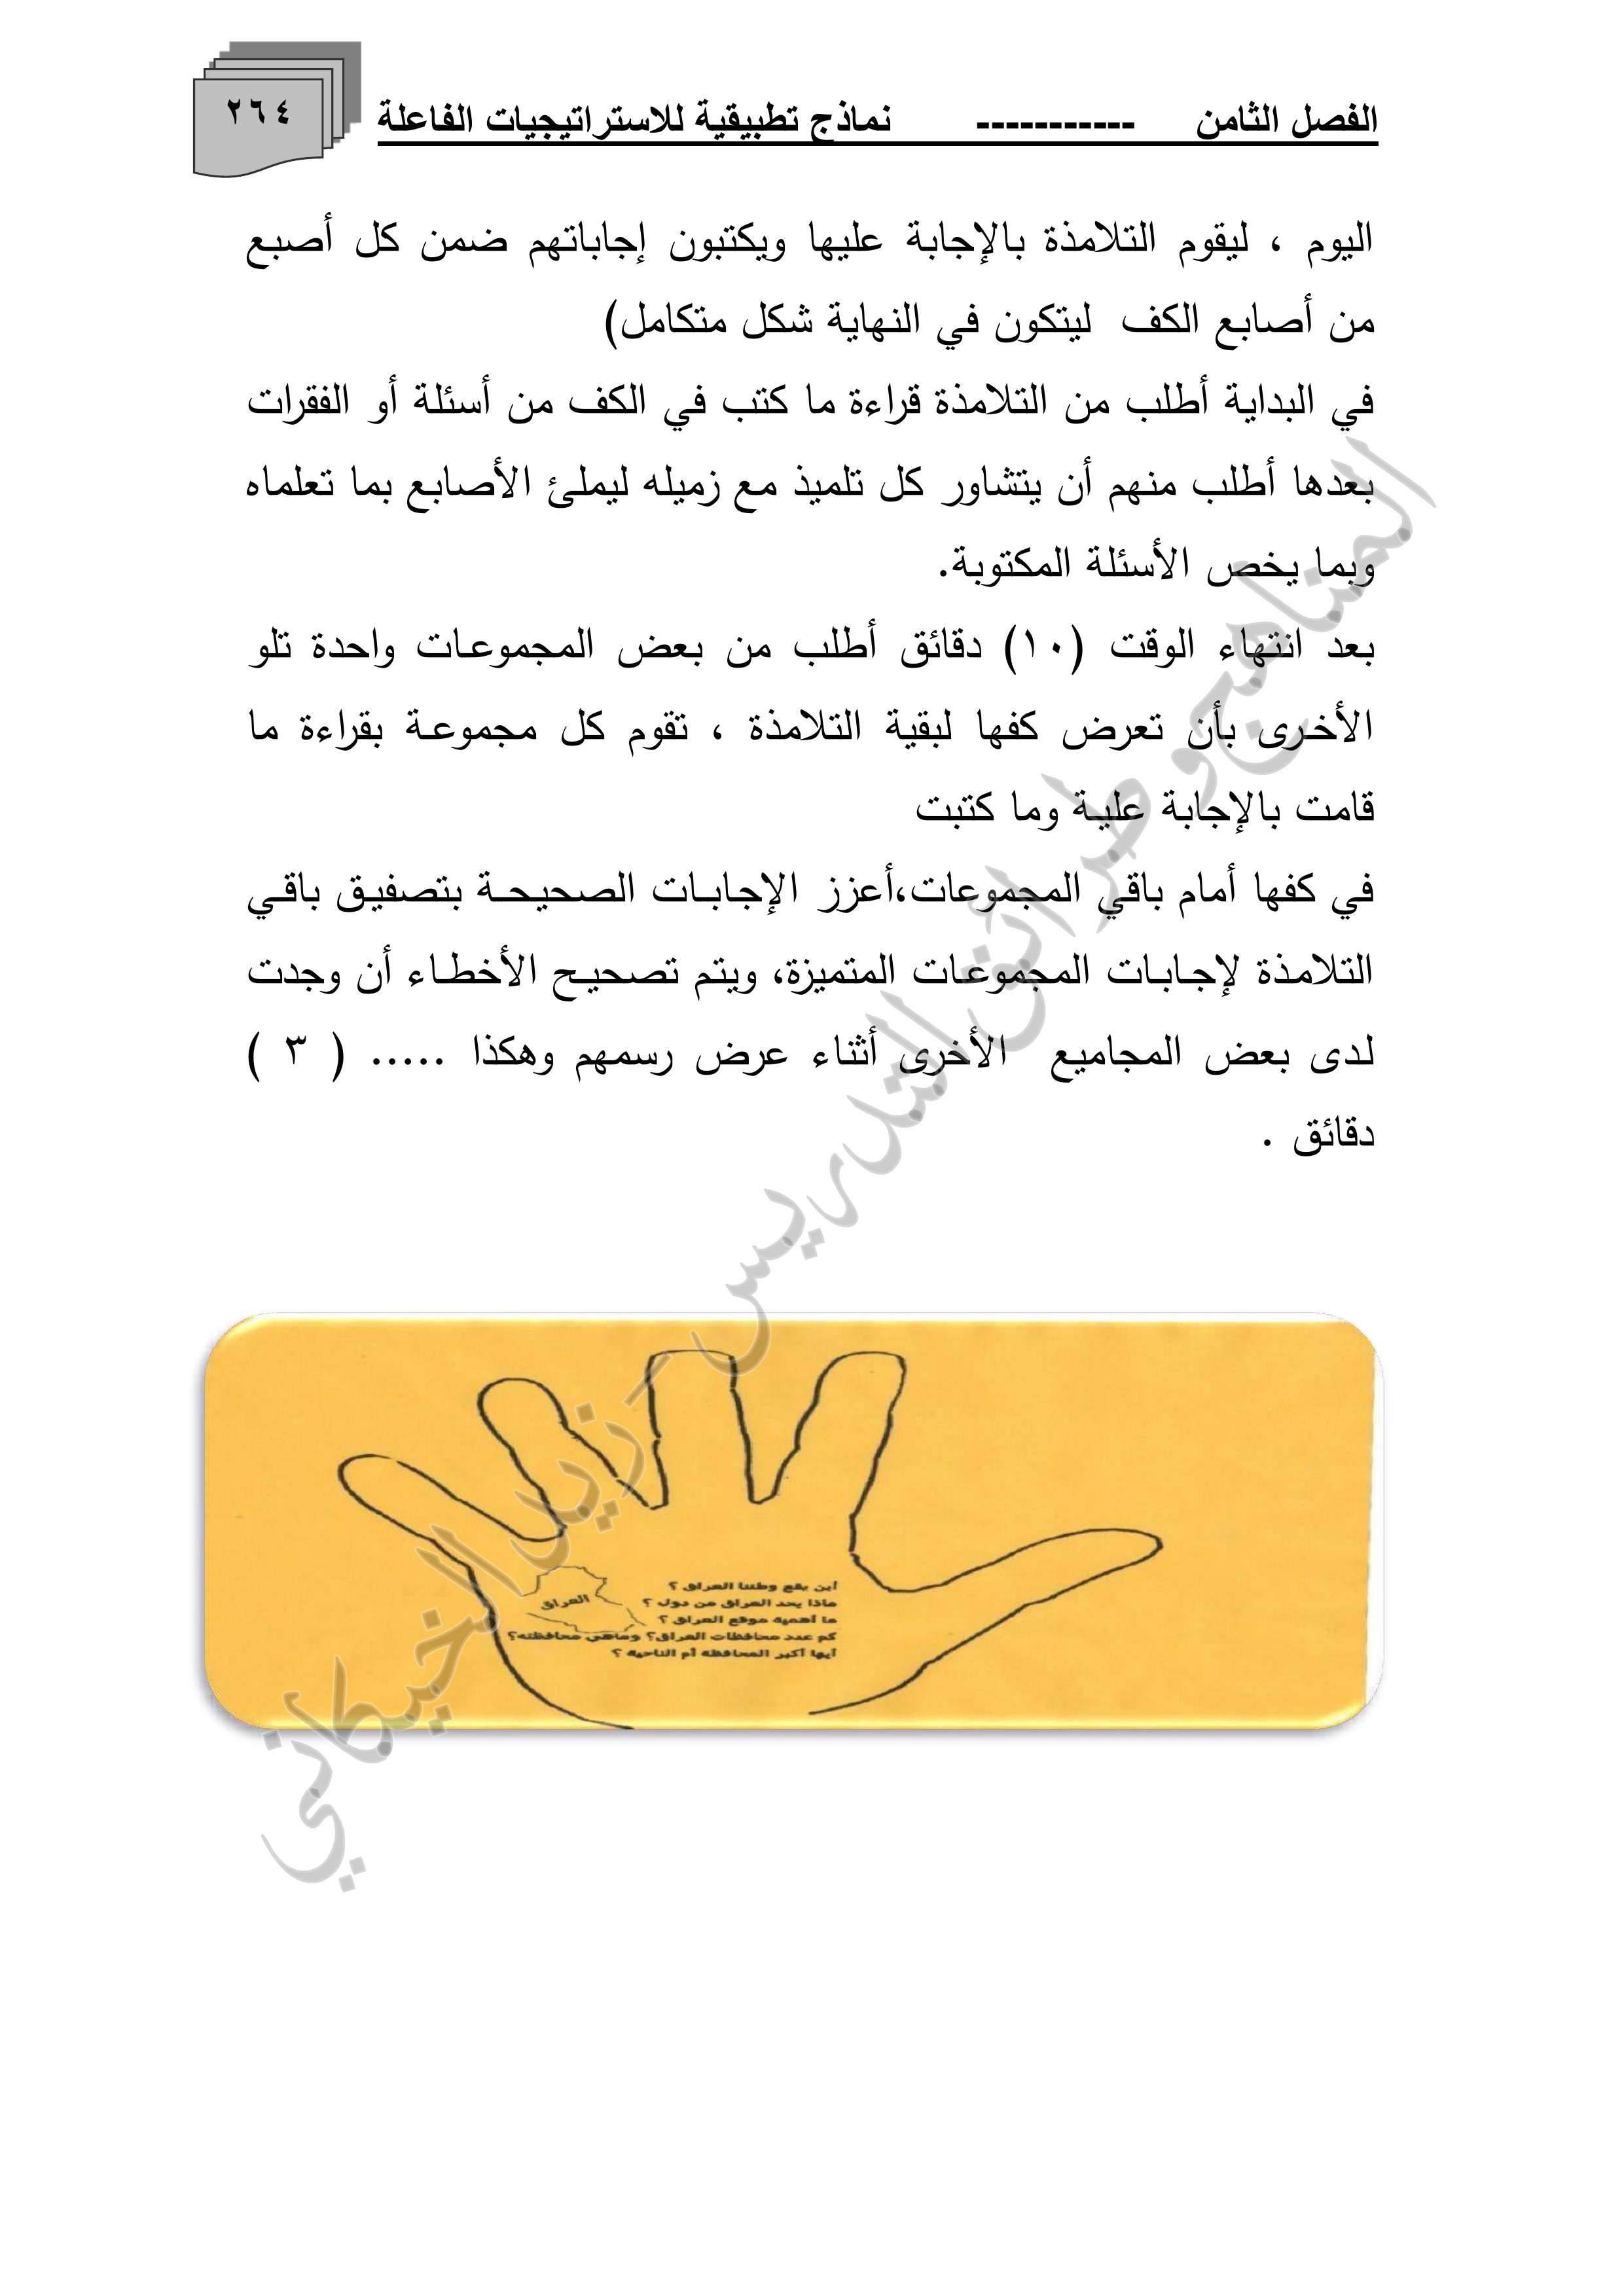 الفصل الثامن ----------- نماذج تطبيقية للاستراتيجيات الفاعلة
٢٦٤
اليوم ، ليقوم التلامذة بالإجابة عليها ويكتبون إجاباتهم ضمن كل أصبع
من أصابع الكف ليتكون في النهاية شكل متكامل)
في البداية أطلب من التلامذة قراءة ما كتب في الكف من أسئلة أو الفقرات
بعدها أطلب منهم أن يتشاور كل تلميذ مع زميله ليملئ الأصابع بما تعلماه
وبما يخص الأسئلة المكتوبة.
بعد انتهاء الوقت (١٠) دقائق أطلب من بعض المجموعات واحدة تلو
الأخرى بأن تعرض كفها لبقية التلامذة ، تقوم كل مجموعة بقراءة ما
قامت بالإجابة علية وما كتبت
في كفها أمام باقي المجموعات،أعزز الإجابات الصحيحة بتصفيق باقي
التلامذة لإجابات المجموعات المتميزة، ويتم تصحيح الأخطاء أن وجدت
لدى بعض المجاميع الأخرى أثناء عرض رسمهم وهكذا ..... ( ٣ )
دقائق .
أين يقع وطننا العراق ؟
ماذا يحد العراق من دول ؟
ما أهمية موقع العراق ؟
كم عدد محافظات العراق؟ وماهي محافظته؟
أيها أكبر المحافظة أم الناحية ؟
العراق
المناهج وطرائق التدريس - زيد الخيكاني